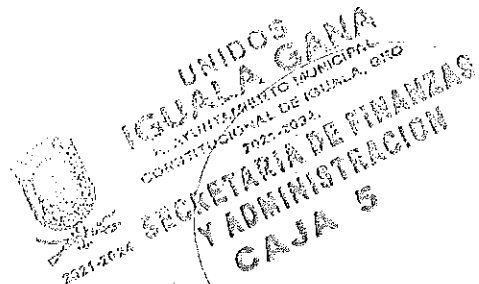 UNIDOS
IGUALA GANA
H. AYUNTAMIENTO MUNICIPAL
CONSTITUCIONAL DE IGUALA, GRO
2021-2024.
SECRETARIA DE FINANZAS
Y ADMINISTRACION
CAJA 5
2021-2024